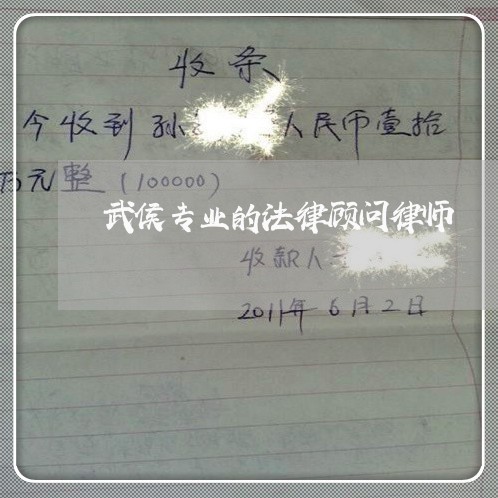 收条
今收到孙 人民币壹拾
万元整(100000)
武侯专业的法律顾问律师
收款人
2011年6月2日